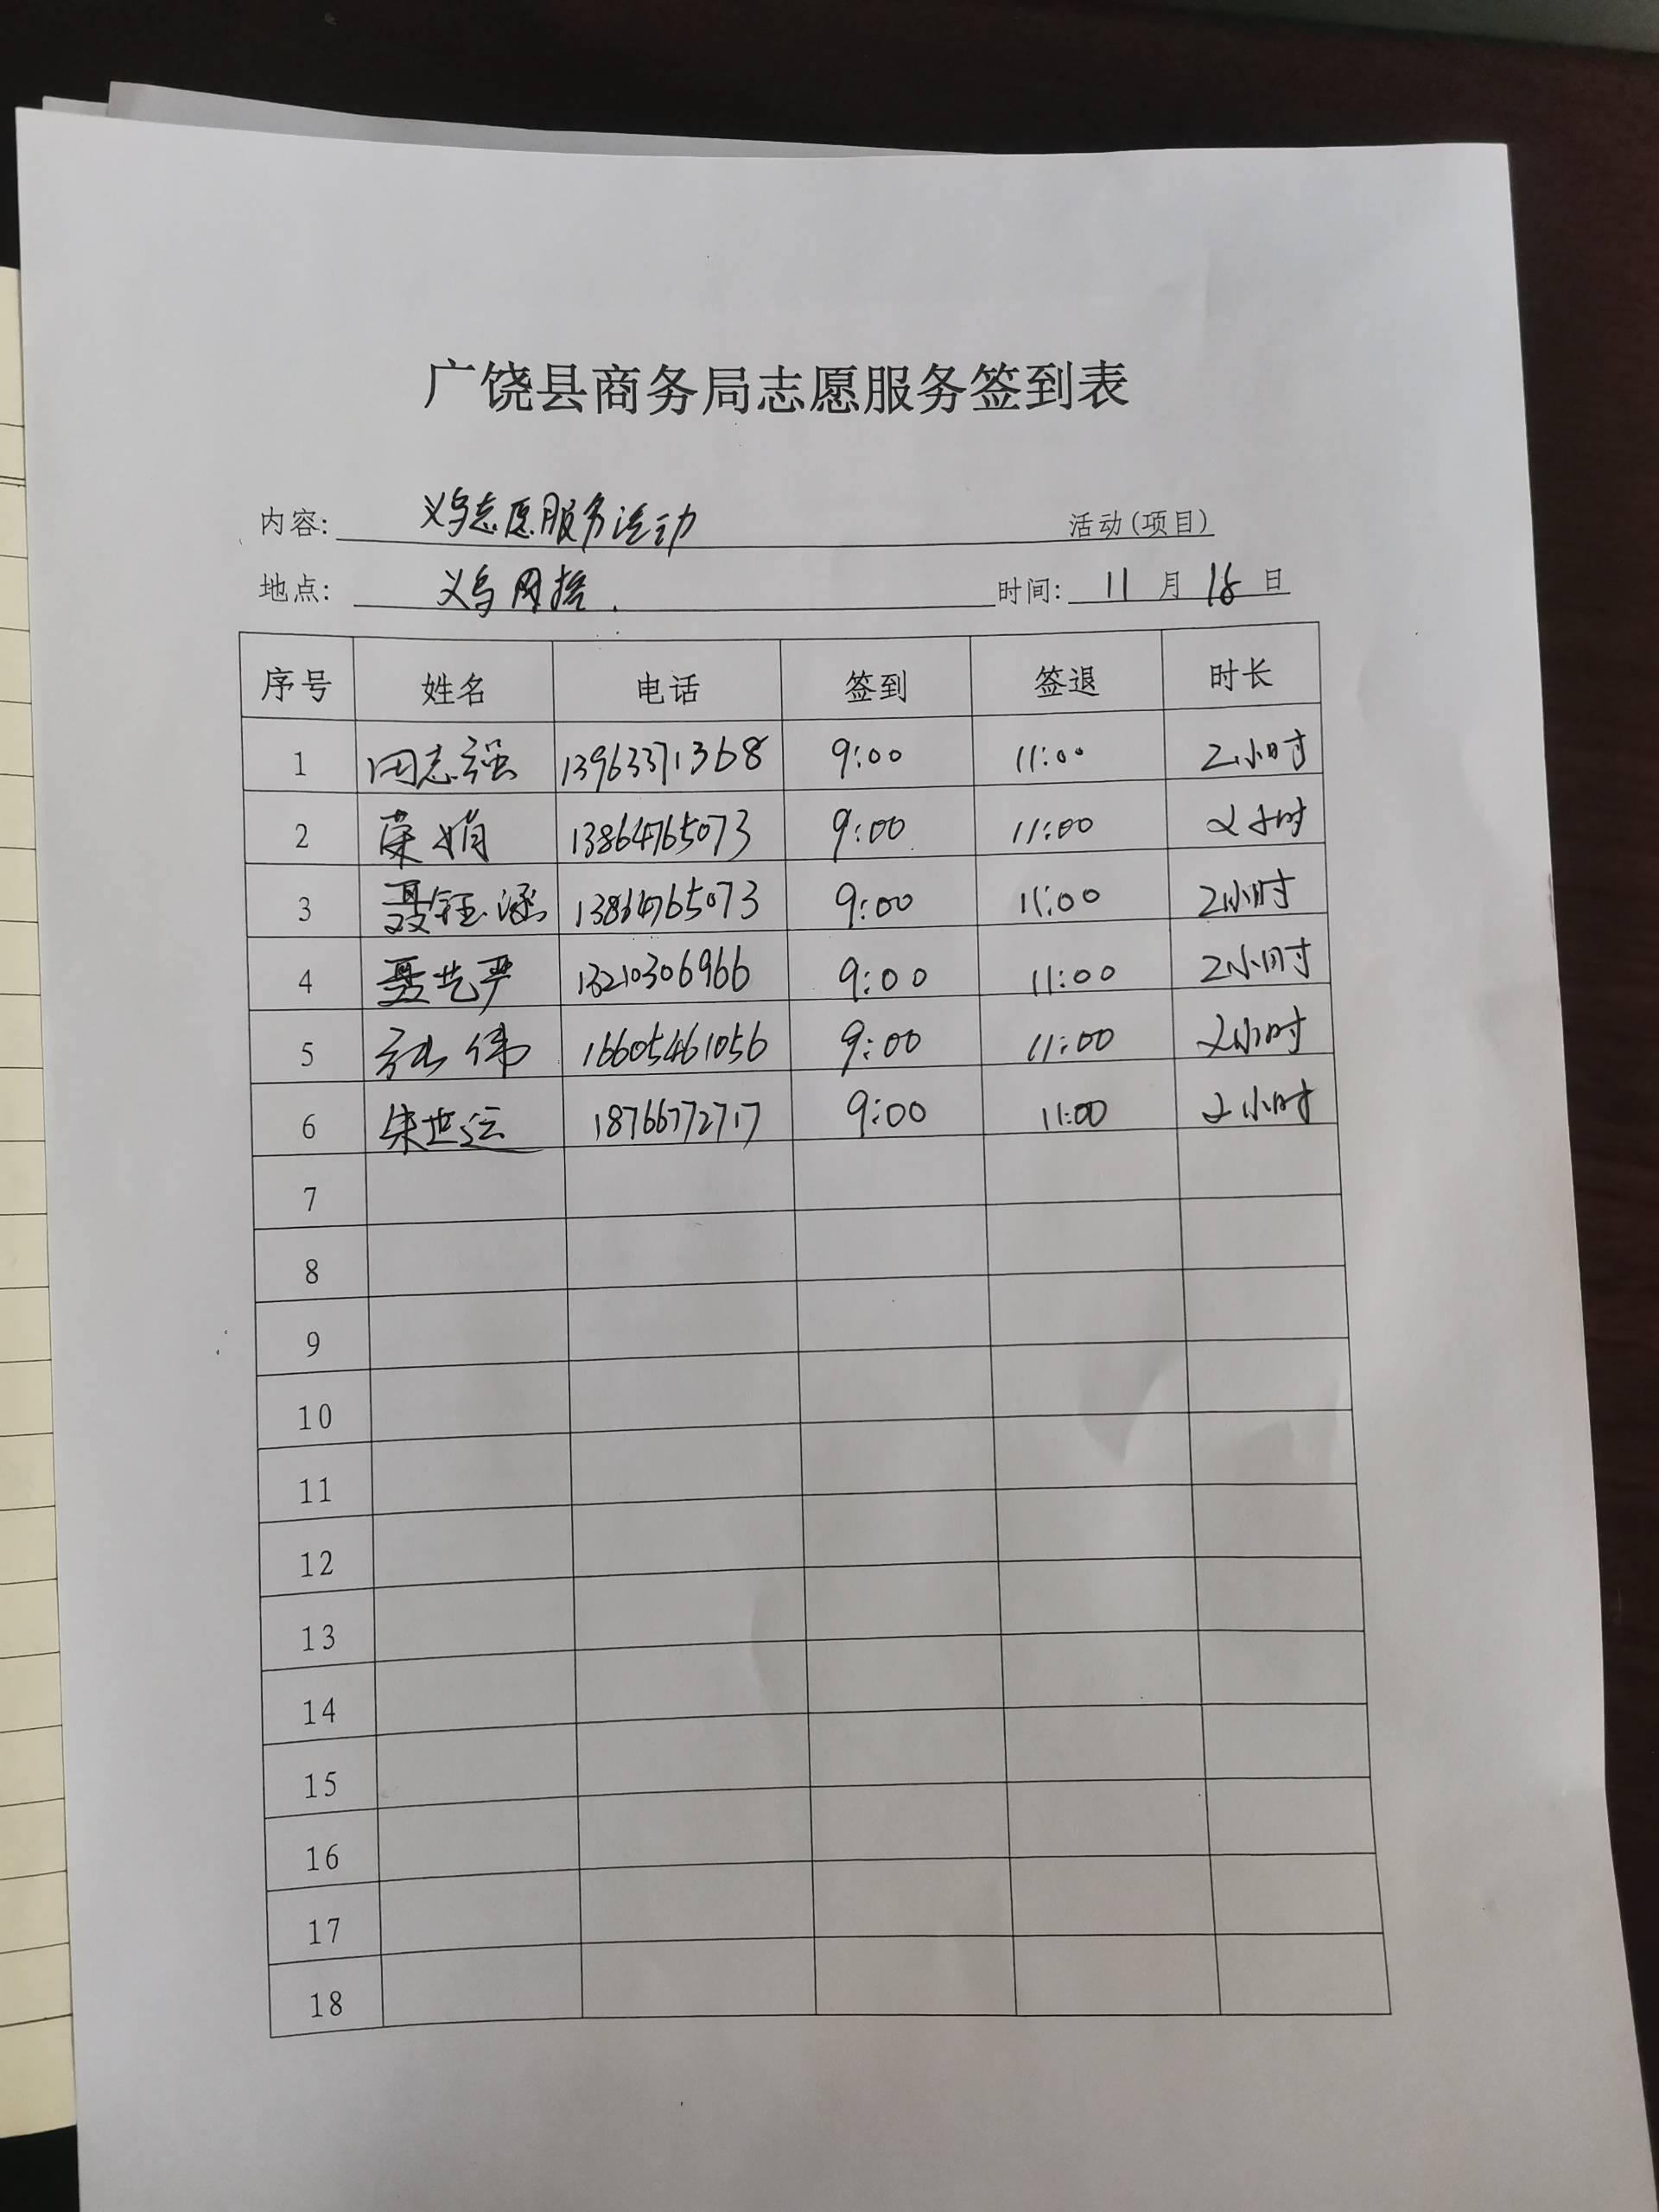 广饶县商务局志愿服务签到表
内容: 义乌志愿服务活动 活动(项目)
地点: 义乌网格. 时间: 11月18日
序号 姓名 电话 签到 签退 时长
1 田志强 13963371368 9:00 11:00 2小时
2 荣娟 13864765073 9:00 11:00 2小时
3 聂钰涵 13864765073 9:00 11:00 2小时
4 聂艺严 13210306966 9:00 11:00 2小时
5 张伟 16605461056 9:00 11:00 2小时
6 朱世运 18766772717 9:00 11:00 2小时
7
8
9
10
11
12
13
14
15
16
17
18